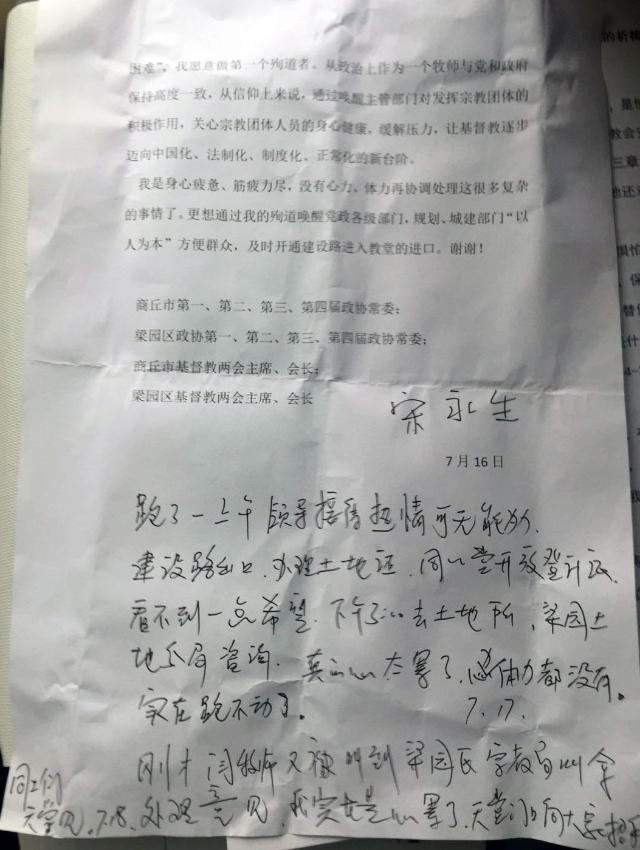 困难”，我愿意做第一个殉道者。从政治上作为一个牧师与党和政府
保持高度一致，从信仰上来说，通过唤醒主管部门对发挥宗教团体的
积极作用，关心宗教团体人员的身心健康，缓解压力，让基督教逐步
迈向中国化、法制化、制度化、正常化的新台阶。
我是身心疲惫、筋疲力尽，没有心力、体力再协调处理这很多复杂
的事情了。更想通过我的殉道唤醒党政各级部门，规划、城建部门“以
人为本”方便群众，及时开通建设路进入教堂的进口。谢谢！
商丘市第一、第二、第三、第四届政协常委；
梁园区政协第一、第二、第三、第四届政协常委；
商丘市基督教两会主席、会长；
梁园区基督教两会主席、会长
宋永生
7 月 16 日
跑了一上午 领导接待热情可无能为力
建设路出口、办理土地证、同一堂开放登记
看不到一点希望。下午 去土地所，梁园土
地 局咨询。真的心太累了，体力都没有。
实在跑不动了。 7.17.
刚才闫牧师又被叫到梁园民宗教局叫拿
处理意见，我实在是心累了，天堂门口向大家招手
同工们
天堂见，7.18.